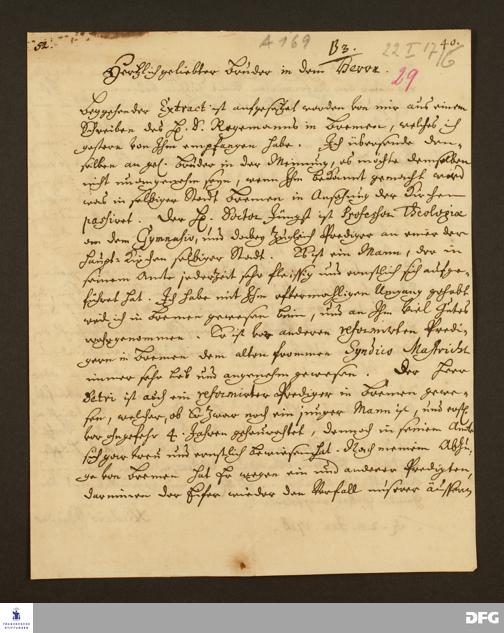 52.
A 169
B3.
22 I 17/6
40.
29
Hertzlich geliebter Bruder in dem Herrn.
Beygehender Extract ist aufgesetzet worden von mir aus einem
Schreiben des H. D. Regemanns in Bremen, welches ich
gestern von Ihm empfangen habe. Ich übersende den-
selben an gel. Bruder in der Meinung, es möchte demselben
nicht unangenehm seyn, wenn Ihm bekannt gemacht werd
was in selbiger Stadt Bremen in Ansehung der Kirchen
passiret. Der H. Doctor Jüngst ist Professor Theologiæ
an dem Gymnasio, und dabey zugleich Prediger an einer der
Haupt-Kirchen selbiger Stadt. Er ist ein Mann, der in
seinem Amte jederzeit sehr fleissig und ernstlich sich aufge-
führet hat. Ich habe mit Ihm oftermahligen Umgang gehabt
weil ich in Bremen gewesen bin, und an Ihm viel Gutes
wahrgenommen. Er ist vor anderen reformirten Predi-
gern in Bremen dem alten frommen Syndico Mastricht
immer sehr lieb und angenehm gewesen. Der Herr
Petri ist auch ein reformirter Prediger in Bremen gewe-
sen, welcher, ob Er zwar noch ein junger Mann ist, und erst
vor ohngefehr 4. Jahren geheurathet, dennoch in seinem Amte
sich gar treu und ernstlich bewiesen hat. Nach meinem Abzu-
ge von Bremen hat Er wegen ein und anderer Predigten,
darinnen der Eifer wieder den Verfall unserer äussern
FRANCKESCHE
STIFTUNGEN
DFG